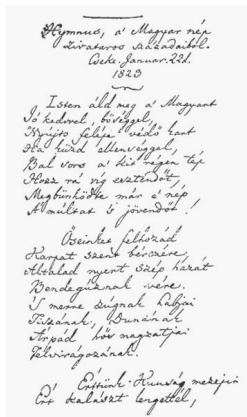 Hymnus, a' Magyar nép
zivataros századaiból.
Cseke. Januar. 22d.
1823
Isten áld meg a Magyart
Jó kedvvel, bőséggel,
Nyújts feléje védő kart
Ha küzd ellenséggel,
Bal sors a' kit régen tép
Hozz rá víg esztendőt,
Megbünhödte már e' nép
A múltat 's jövendőt!
Őseinket felhozád
Kárpát szent bérczére
Általad nyert szép hazát
Bendegúznak vére.
'S merre zúgnak habjai
Tiszának, Dunának
Árpád hős magzatjai
Felvirágozának.
Értünk Kunság mezején
Ért kalászt lengettél,